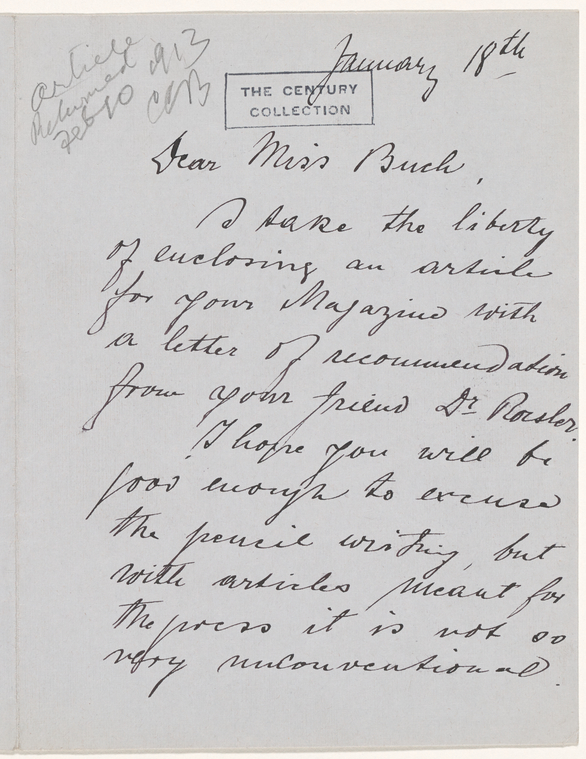 article
Returned
Feb 10 1913
CCB
January 18th
THE CENTURY
COLLECTION
Dear Miss Buch,
I take the liberty
of enclosing an article
for your Magazine with
a letter of recommendation
from your friend Dr.
I hope you will be
good enough to excuse
the pencil writing, but
with articles meant for
the press it is not so
very unconventional.